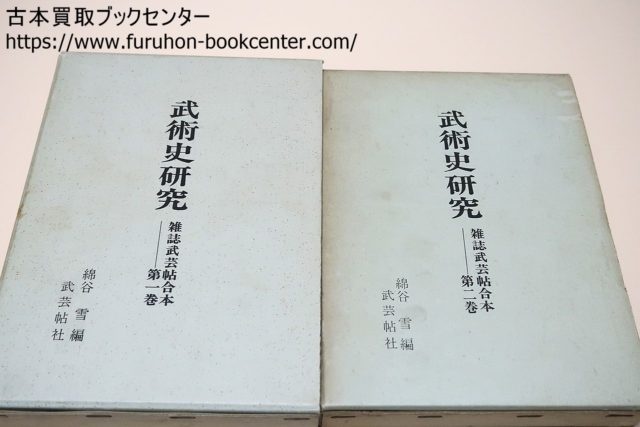 古本買取ブックセンター
https://www.furuhon-bookcenter.com/
武術史研究
雑誌武芸帖合本
第一巻
綿谷 雪 編
武芸帖社
武術史研究
雑誌武芸帖合本
第二巻
綿谷 雪 編
武芸帖社